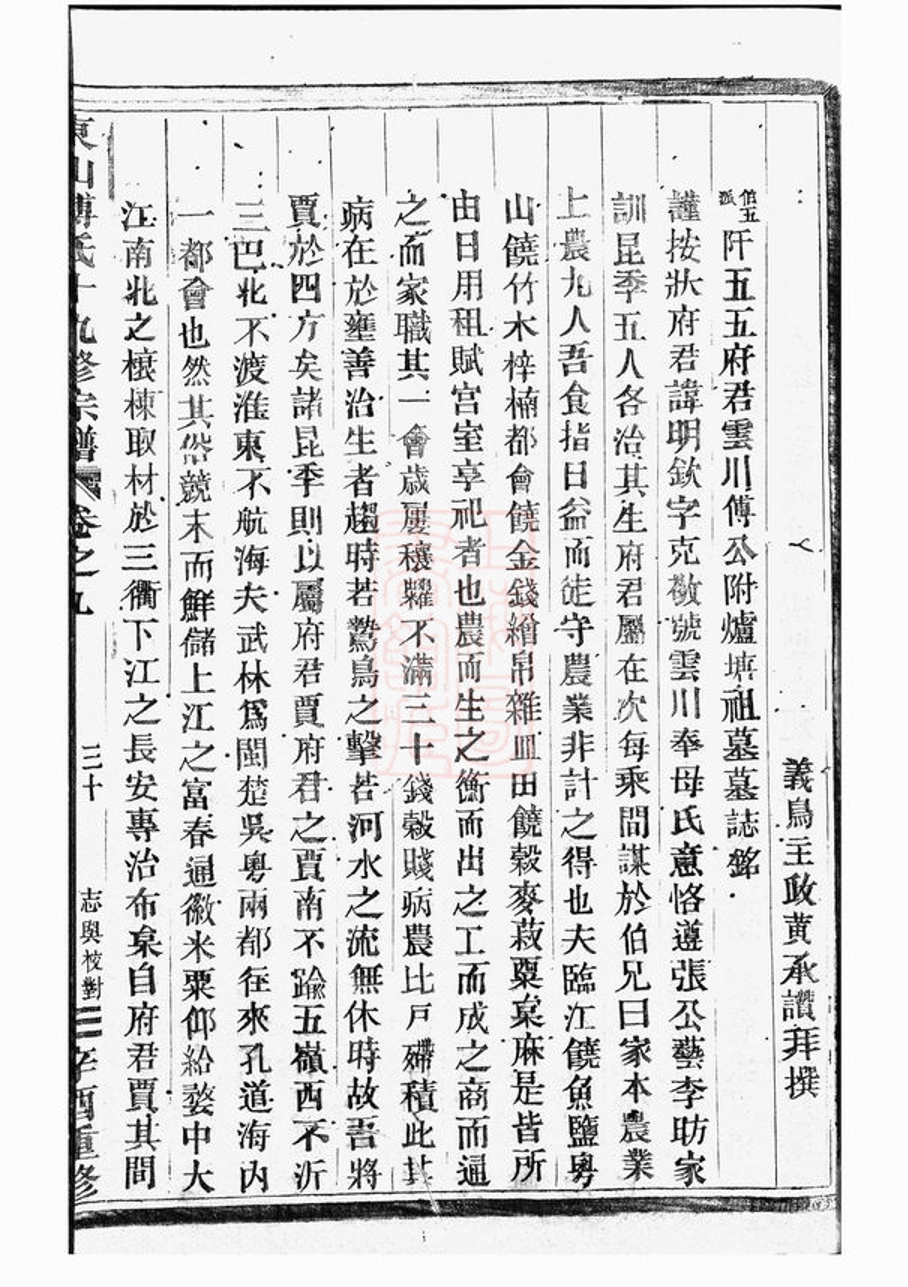 義烏主政黄承讚拜撰
伯五派 阡五五府君雲川傅公附爐塘祖墓墓誌銘
謹按狀府君諱明欽字克敬號雲川奉母氏意恪遵張公藝李昉家
訓昆季五人各治其生府君屬在次每乘間謀於伯兄曰家本農業
上農九人吾食指日益而徒守農業非計之得也夫臨江饒魚鹽粤
山饒竹木梓楠都會饒金錢繒帛雜皿田饒榖麥菽粟枲麻是皆所
由日用租賦宫室享祀者也農而生之衡而出之工而成之商而通
之而家職其一會歲屢穰糶不滿三十錢榖賤病農比戸磚積此封
病在於壅善治生者趨時若鷙鳥之擊若河水之流無休時故吾將
賈於四方矣諸昆季則以屬府君賈府君之賈南不踰五嶺西不泝
三巴北不渡淮東不航海夫武林爲閩楚吳粤兩都往來孔道海内
一都會也然其俗競末而鮮儲上江之富春通徽米粟仰給婺中大
江南北之榱棟取材於三衢下江之長安專治布枲自府君賈其間
東山傅氏十九修宗譜 卷之九 三十 志與校對 辛酉重修